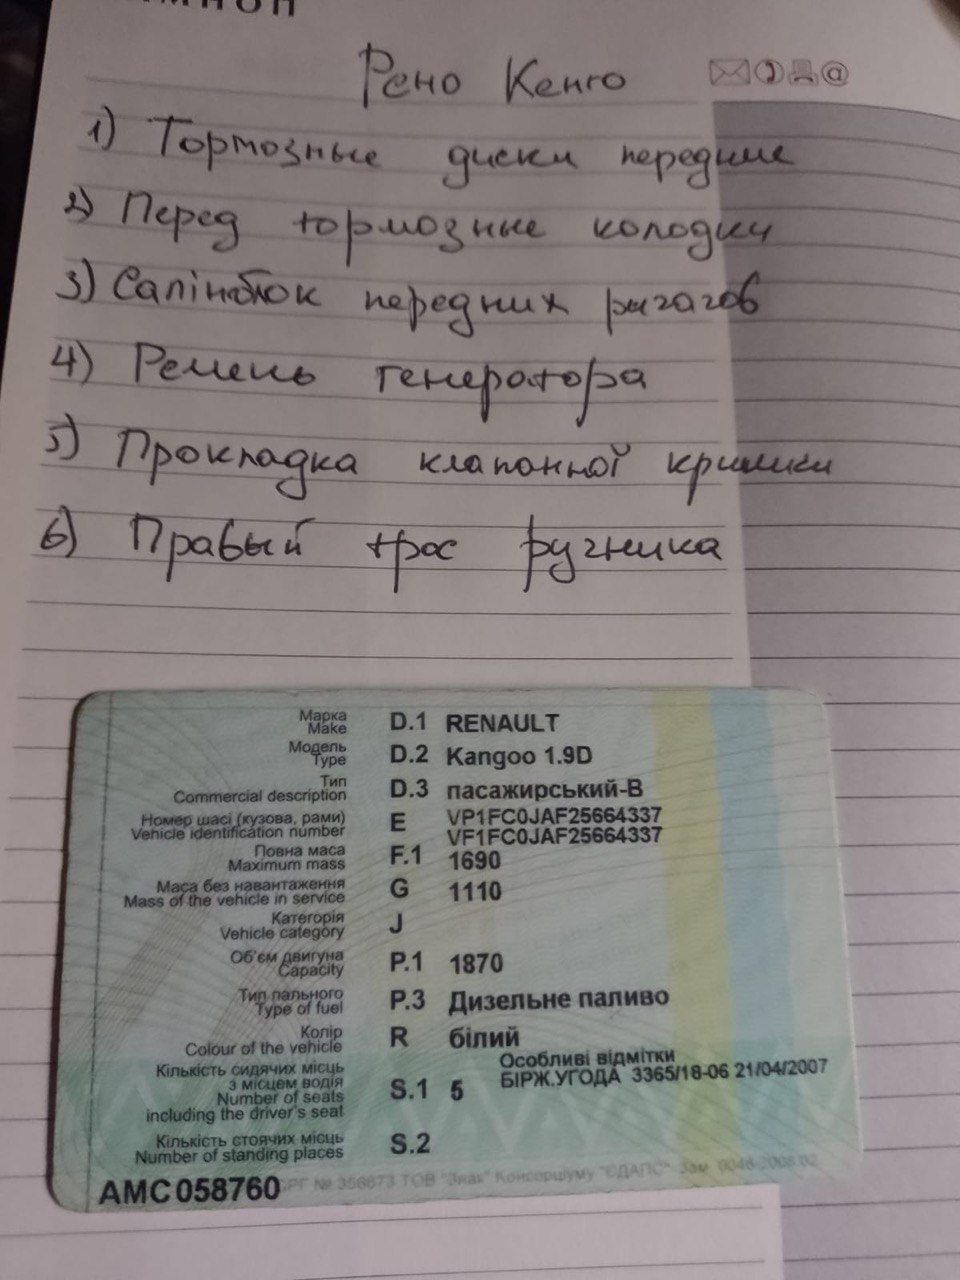 Рено Кенго
1) Тормозные диски передние
2) Перед тормозные колодки
3) Салінблок передних рычагов
4) Ремень генератора
5) Прокладка клапонної кришки
6) Правый трос ручника
Марка
Make D.1 RENAULT
Модель
Type D.2 Kangoo 1.9D
Тип
Commercial description D.3 пасажирський-В
Номер шасі (кузова, рами)
Vehicle identification number E VP1FC0JAF25664337
VF1FC0JAF25664337
Повна маса
Maximum mass F.1 1690
Маса без навантаження
Mass of the vehicle in service G 1110
Категорія
Vehicle category J
Об'єм двигуна
Capacity P.1 1870
Тип пального
Type of fuel P.3 Дизельне паливо
Колір
Colour of the vehicle R білий
Особливі відмітки
БІРЖ.УГОДА 3365/18-06 21/04/2007
Кількість сидячих місць
з місцем водія
Number of seats
including the driver's seat S.1 5
Кількість стоячих місць
Number of standing places S.2
АМС058760
№ 356673 ТОВ "Знак" Консорціуму "ЄДАПС"